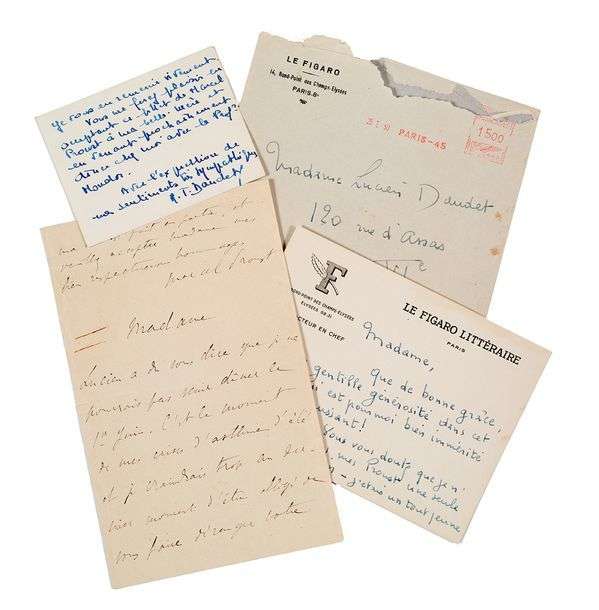 Je vous en remercie vivement
Vous me ferez plaisir en
acceptant ce petit de Marcel
Proust à ma belle
en venant prochainement
chez moi avec le Prof.
Mondor.
Avec l'expression de
mes sentiments sympathiques
M.T. Daudet
LE FIGARO
14, Rond-Point des Champs-Elysées
PARIS-8e
PARIS-45
1500
Madame Lucien Daudet
120 rue d'Assas
veuillez accepter Madame mes
bien respectueux hommages
Marcel Proust
Madame
Lucien a dû vous dire que je ne
pourrais pas venir dîner le
1er Juin. C'est le moment
de mes crises d'asthme d'été
et je craindrais trop au der-
nier moment d'être obligé de
vous faire déranger votre
F
ROND-POINT DES CHAMPS-ELYSÉES
ELYSÉES
CTEUR EN CHEF
LE FIGARO LITTÉRAIRE
PARIS
Madame,
que de bonne grâce,
gentille générosité dans cet
est pour moi bien immérité
Vous vous doutez que je n'
mes Proust une seule
j'étais un tout jeune